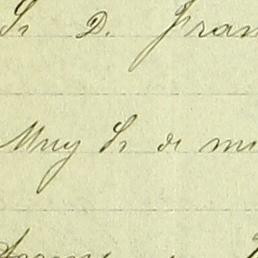 Sr D. Fran
Muy Sr de mi